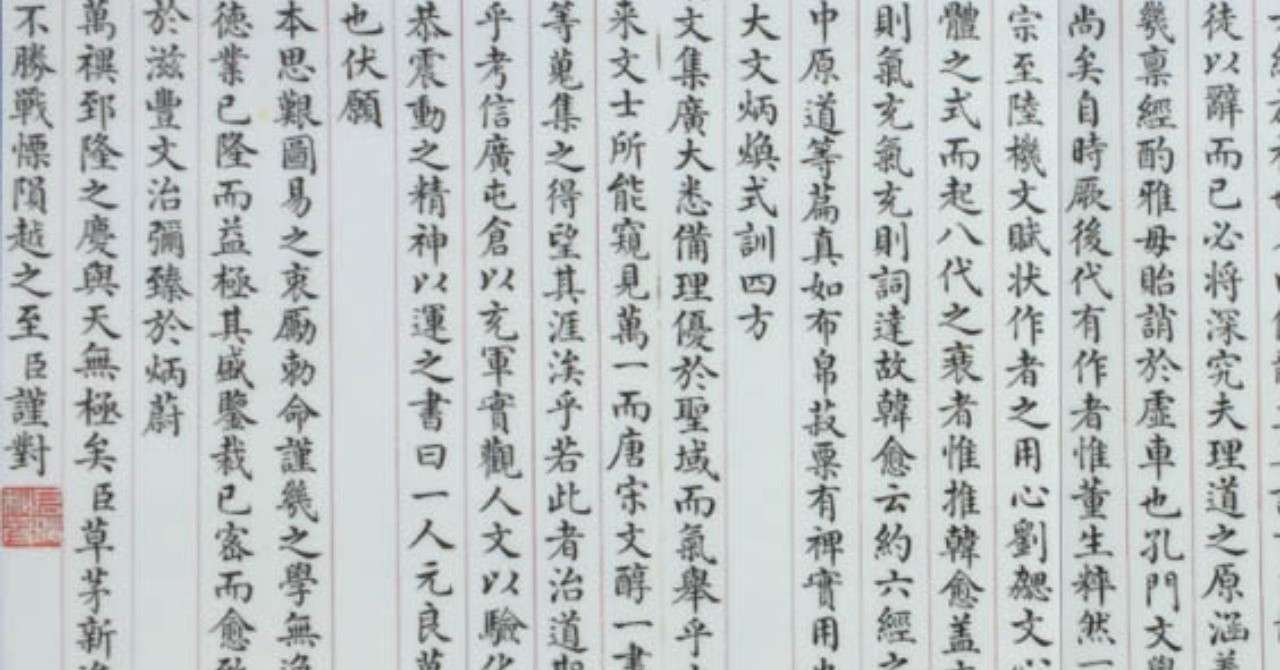 徒以辭而已必将深究夫理道之原涵
幾稟經酌雅毋貽誚於虛車也孔門文
尚矣自時厥後代有作者惟董生粹然一
宗至陸機文賦状作者之用心劉勰文心
體之式而起八代之衰者惟推韓愈盖
則氣充氣充則詞達故韓愈云約六經之
中原道等篇真如布帛菽粟有裨實用
大文炳煥式訓四方
文集廣大悉備理優於聖域而氣舉乎
来文士所能窺見萬一而唐宋文醇一書
等蒐集之得望其涯涘乎若此者治道
乎考信廣屯倉以充軍實觀人文以驗化
恭震動之精神以運之書曰一人元良萬
也伏願
本思艱圖易之衷勵勅命謹幾之學無
德業已隆而益極其盛鑒裁已密而愈
於滋豐文治彌臻於炳蔚
萬禩郅隆之慶與天無極矣臣草茅新進
不勝戰慄隕越之至臣謹對